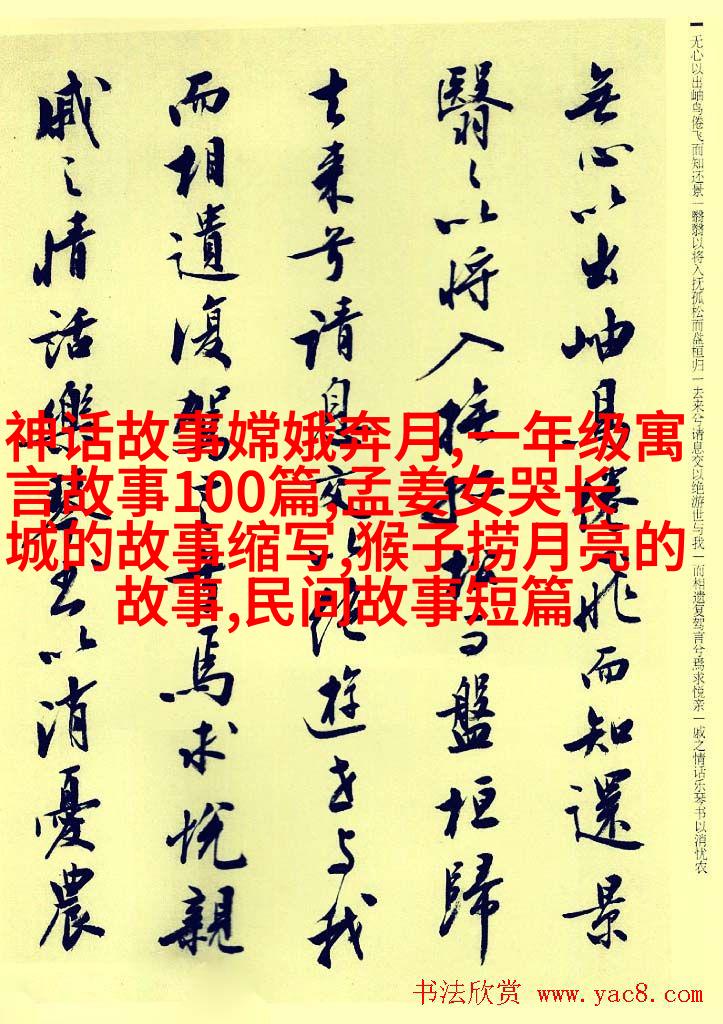 神话故事嫦娥奔月,一年级寓
言故事100篇,孟姜女哭长
城的故事缩写,猴子捞月亮的
故事,民间故事短篇
无心以出岫鸟倦飞而知还景一翳翳以将入抚孤松而盘桓归一去来兮请息交以绝游世与我一而相遗复驾言兮焉求悦亲一戚之情话乐琴书以消忧农
無心以出岫鳥倦飛而知還景
翳〻以將入撫孤松而盤桓歸
去來兮請息交以絕遊世与我
而相遺復駕言兮焉求悅親
戚之情話樂琴書以消憂農
书法欣赏 www.yac8.com